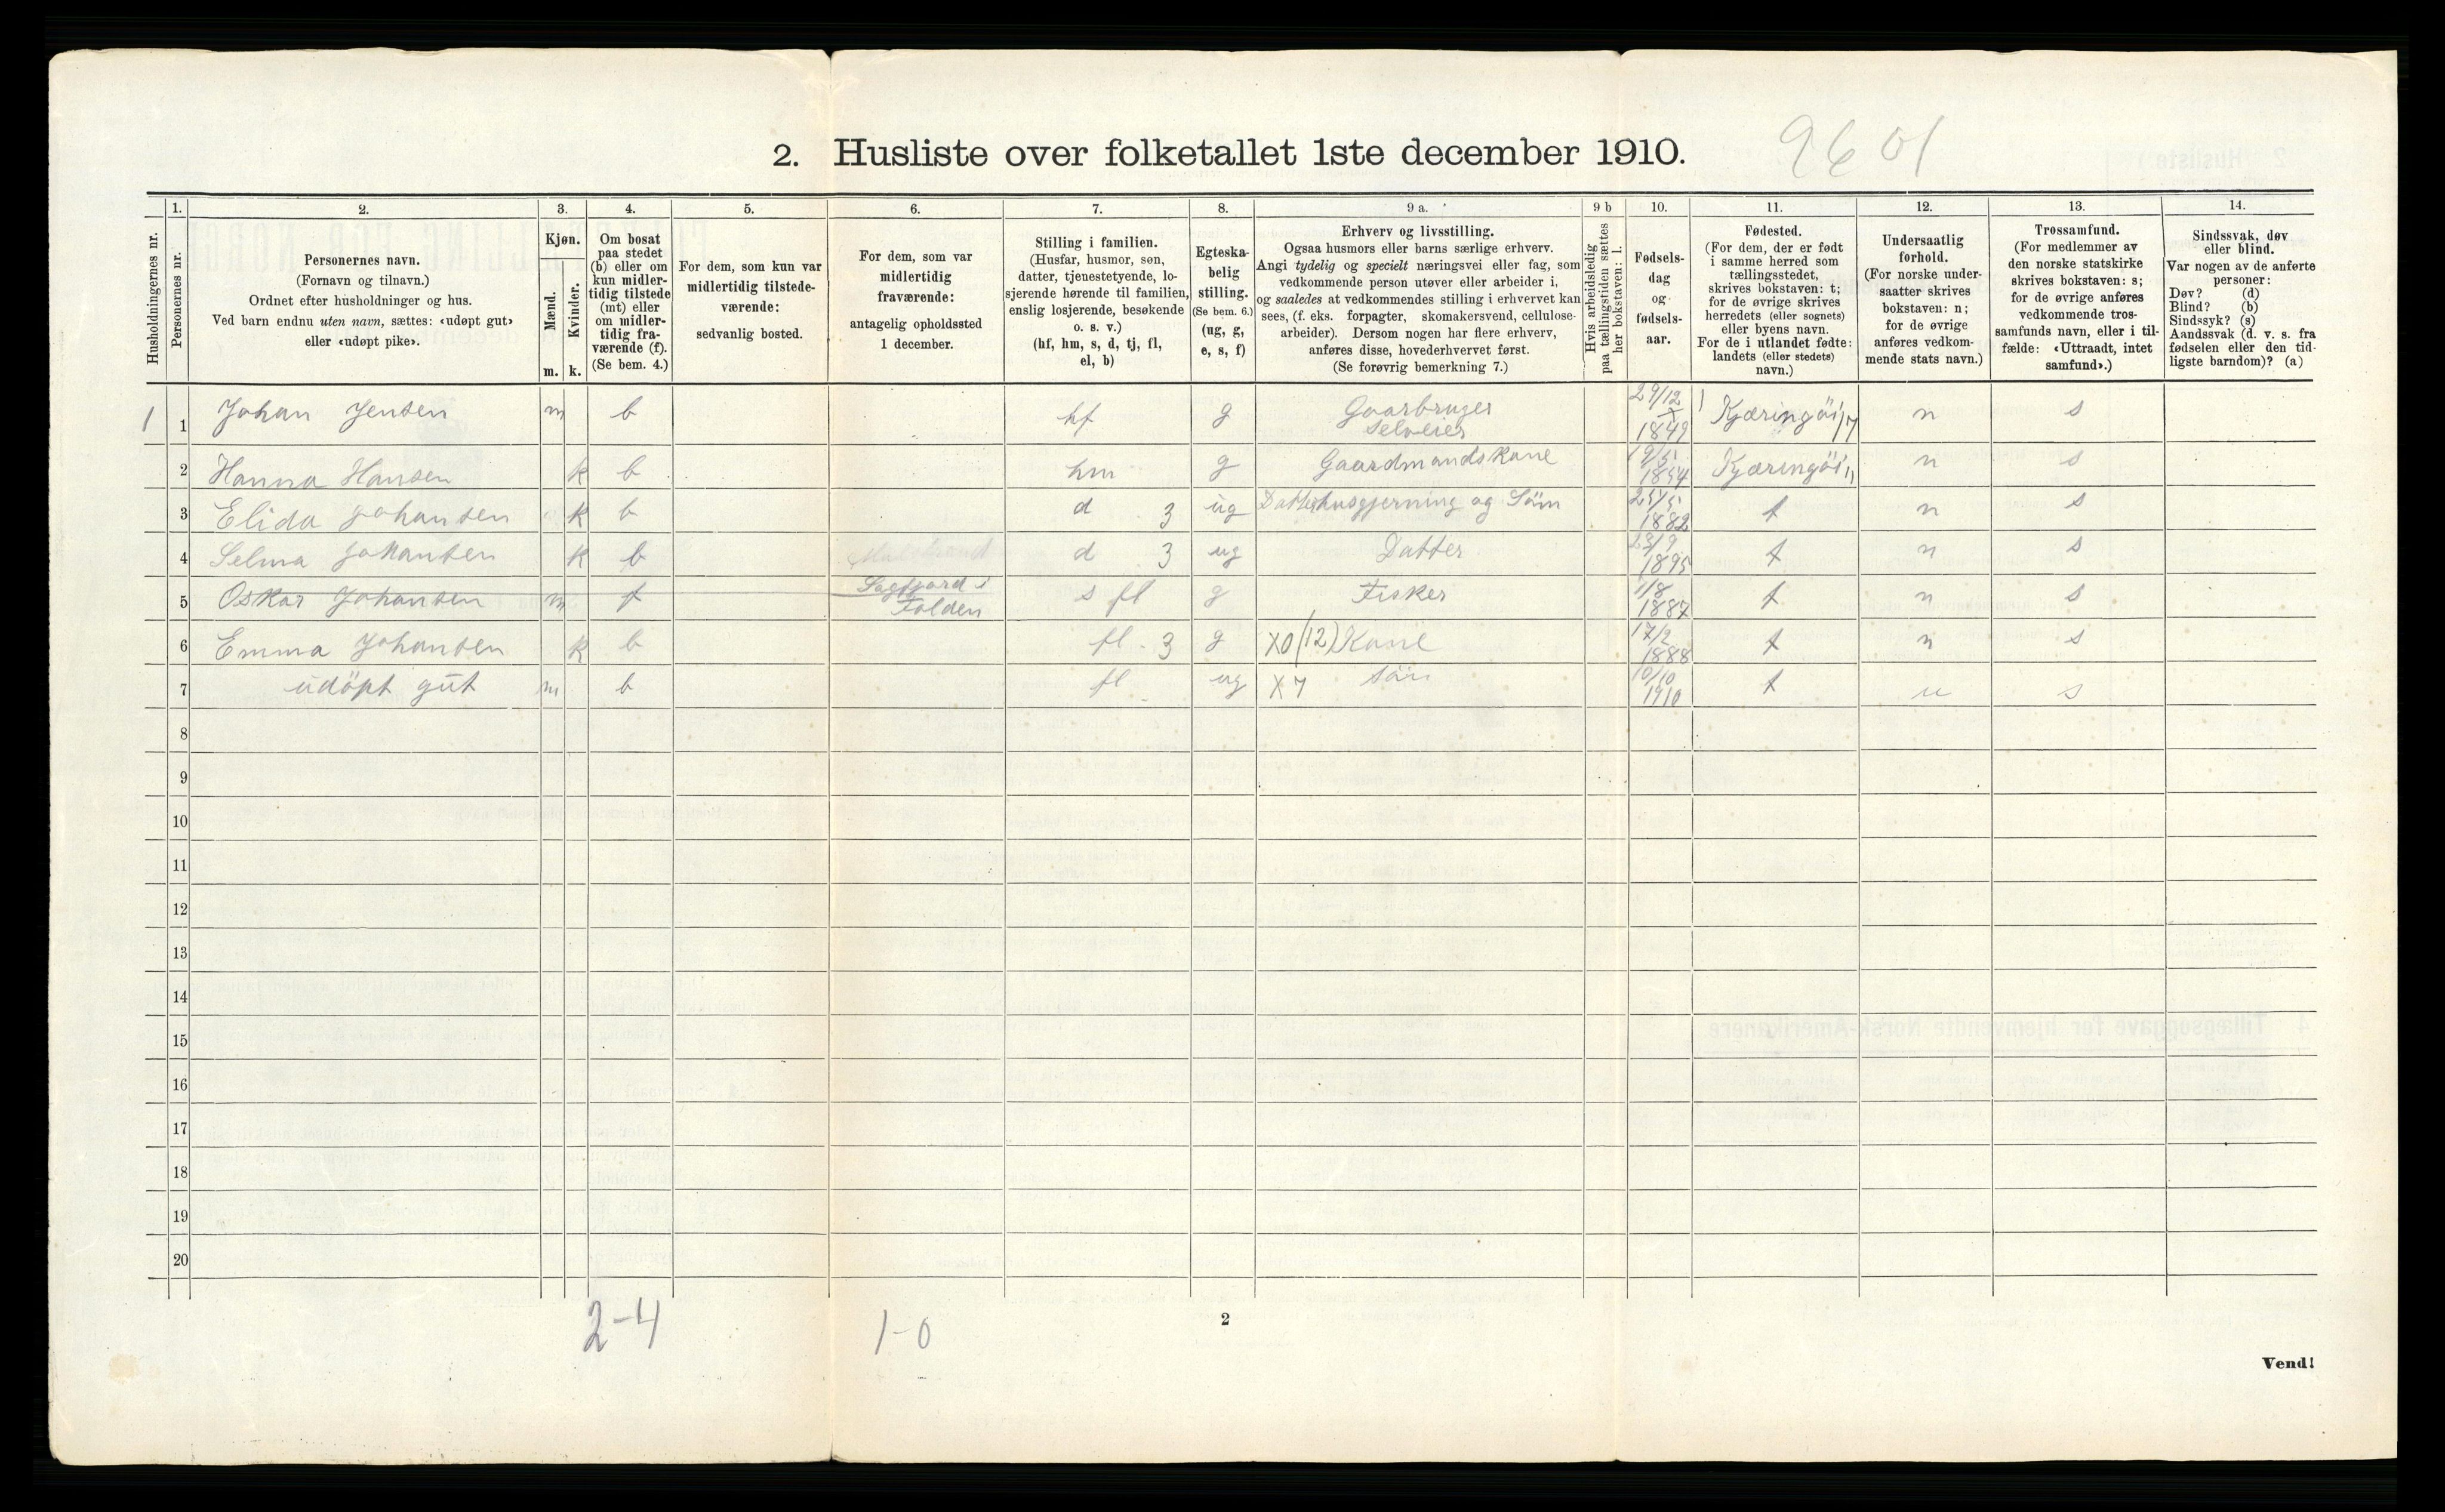 2. Husliste over folketallet 1ste december 1910.
9601
1. 2. 3. 4. 5. 6. 7. 8. 9 a. 9 b 10. 11. 12. 13. 14.
Husholdningernes nr.
Personernes nr.
Personernes navn.
(Fornavn og tilnavn.)
Ordnet efter husholdninger og hus.
Ved barn endnu uten navn, sættes: «udøpt gut»
eller «udøpt pike».
Kjøn.
Mænd.
Kvinder.
m. k.
Om bosat
paa stedet
(b) eller om
kun midler-
tidig tilstede
(mt) eller
om midler-
tidig fra-
værende (f).
(Se bem. 4.)
For dem, som kun var
midlertidig tilstede-
værende:
sedvanlig bosted.
For dem, som var
midlertidig
fraværende:
antagelig opholdssted
1 december.
Stilling i familien.
(Husfar, husmor, søn,
datter, tjenestetyende, lo-
sjerende hørende til familien,
enslig losjerende, besøkende
o. s. v.)
(hf, hm, s, d, tj, fl,
el, b)
Egteska-
belig
stilling.
(Se bem. 6.)
(ug, g,
e, s, f)
Erhverv og livsstilling.
Ogsaa husmors eller barns særlige erhverv.
Angi tydelig og specielt næringsvei eller fag, som
vedkommende person utøver eller arbeider i,
og saaledes at vedkommendes stilling i erhvervet kan
sees, (f. eks. forpagter, skomakersvend, cellulose-
arbeider). Dersom nogen har flere erhverv,
anføres disse, hovederhvervet først.
(Se forøvrig bemerkning 7.)
Hvis arbeidsledig
paa tællingstiden sættes
her bokstaven: l.
Fødsels-
dag
og
fødsels-
aar.
Fødested.
(For dem, der er født
i samme herred som
tællingsstedet,
skrives bokstaven: t;
for de øvrige skrives
herredets (eller sognets)
eller byens navn.
For de i utlandet fødte:
landets (eller stedets)
navn.)
Undersaatlig
forhold.
(For norske under-
saatter skrives
bokstaven: n;
for de øvrige
anføres vedkom-
mende stats navn.)
Trossamfund.
(For medlemmer av
den norske statskirke
skrives bokstaven: s;
for de øvrige anføres
vedkommende tros-
samfunds navn, eller i til-
fælde: «Uttraadt, intet
samfund».)
Sindssvak, døv
eller blind.
Var nogen av de anførte
personer:
Døv? (d)
Blind? (b)
Sindssyk? (s)
Aandssvak (d. v. s. fra
fødselen eller den tid-
ligste barndom)? (a)
1 1 Johan Jensen m b hf g Gaarbruger Selveier 29/12 1849 Kjæringöi n s
2 Hanna Hansen k b hm g Gaardmandskone 19/5 1854 Kjæringöi n s
3 Elida Johansen k b d 3 ug Datter husgjerning og Söm 25/5 1882 t n s
4 Selma Johansen k b d 3 ug Datter 23/9 1895 t n s
5 Oskar Johansen m f Sagfjord i Folden s fl g Fisker 1/8 1887 t n s
6 Emma Johansen k b fl 3 g X0(12) Kone 17/2 1888 t n s
7 udöpt gut m b fl ug X7 sön 10/10 1910 t n s
8
9
10
11
12
13
14
15
16
17
18
19
20
2-4
1-0
2
Vend!